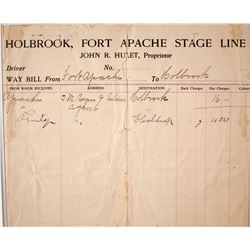 HOLBROOK, FORT APACHE STAGE LINE
JOHN R. HULET, Proprietor
Driver No.
WAY BILL From Fort Apache To Holbrook
FROM WHOM RECEIVED ADDRESS DESTINATION Back Charges Our Charges Collect
Apache Holbrook 16 -
Agent
" Holbrook 9 400